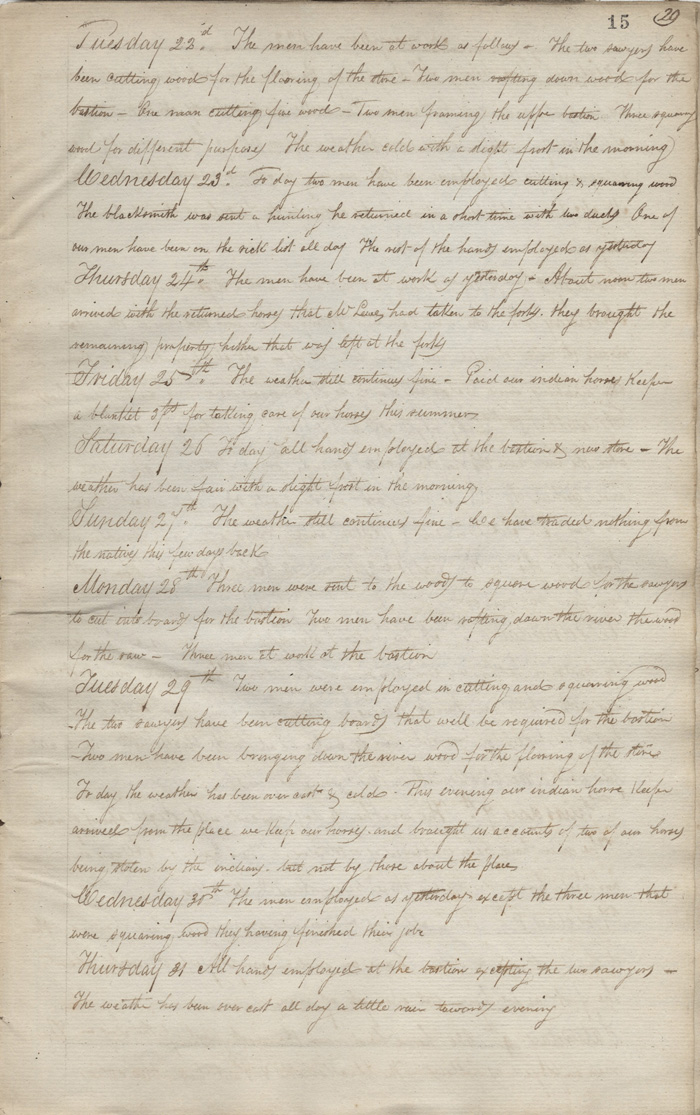 15 29
Tuesday 22.d The men have been at work as follows - The two sawyers have
been cutting wood for the flooring of the store - Two men rafting down wood for the
bastion - One man cutting fire wood - Two men framing the upper bastion Three squaring
wood for different purposes The weather cold with a slight frost in the morning
Wednesday 23.d To day two men have been employed cutting & squaring wood
The blacksmith was sent a hunting he returned in a short time with two ducks One of
our men have been on the sick list all day The rest of the hands employed as yesterday
Thursday 24.th The men have been at work as yesterday - About noon two men
arrived with the returned horses that Mr had taken to the forks. they brought the
remaining property hither that was left at the forks
Friday 25th. The weather still continues fine - Paid our indian horse Keeper
a blanket for taking care of our horses this summer
Saturday 26 To day all hands employed at the bastion & new store - The
weather has been fair with a slight frost in the morning
Sunday 27.th The weather still continues fine - We have traded nothing from
the natives this few days back
Monday 28th Three men were sent to the woods to square wood for the sawyers
to cut into boards for the bastion Two men have been rafting down the river the wood
for the saw - Three men at work at the bastion
Tuesday 29th Two men were employed in cutting and squaring wood
The two sawyers have been cutting boards that will be required for the bastion
- Two men have been bringing down the river wood for the flooring of the store
To day the weather has been over cast & cold - This evening our indian horse Keeper
arrived from the place we Keep our horses. and brought us accounts of two of our horses
being stolen by the indians. but not by those about the place
Wednesday 30th The men employed as yesterday except the three men that
were squaring wood they having finished their job
Thursday 31 All hands employed at the bastion excepting the two sawyers -
The weather has been over cast all day a little rain towards evening